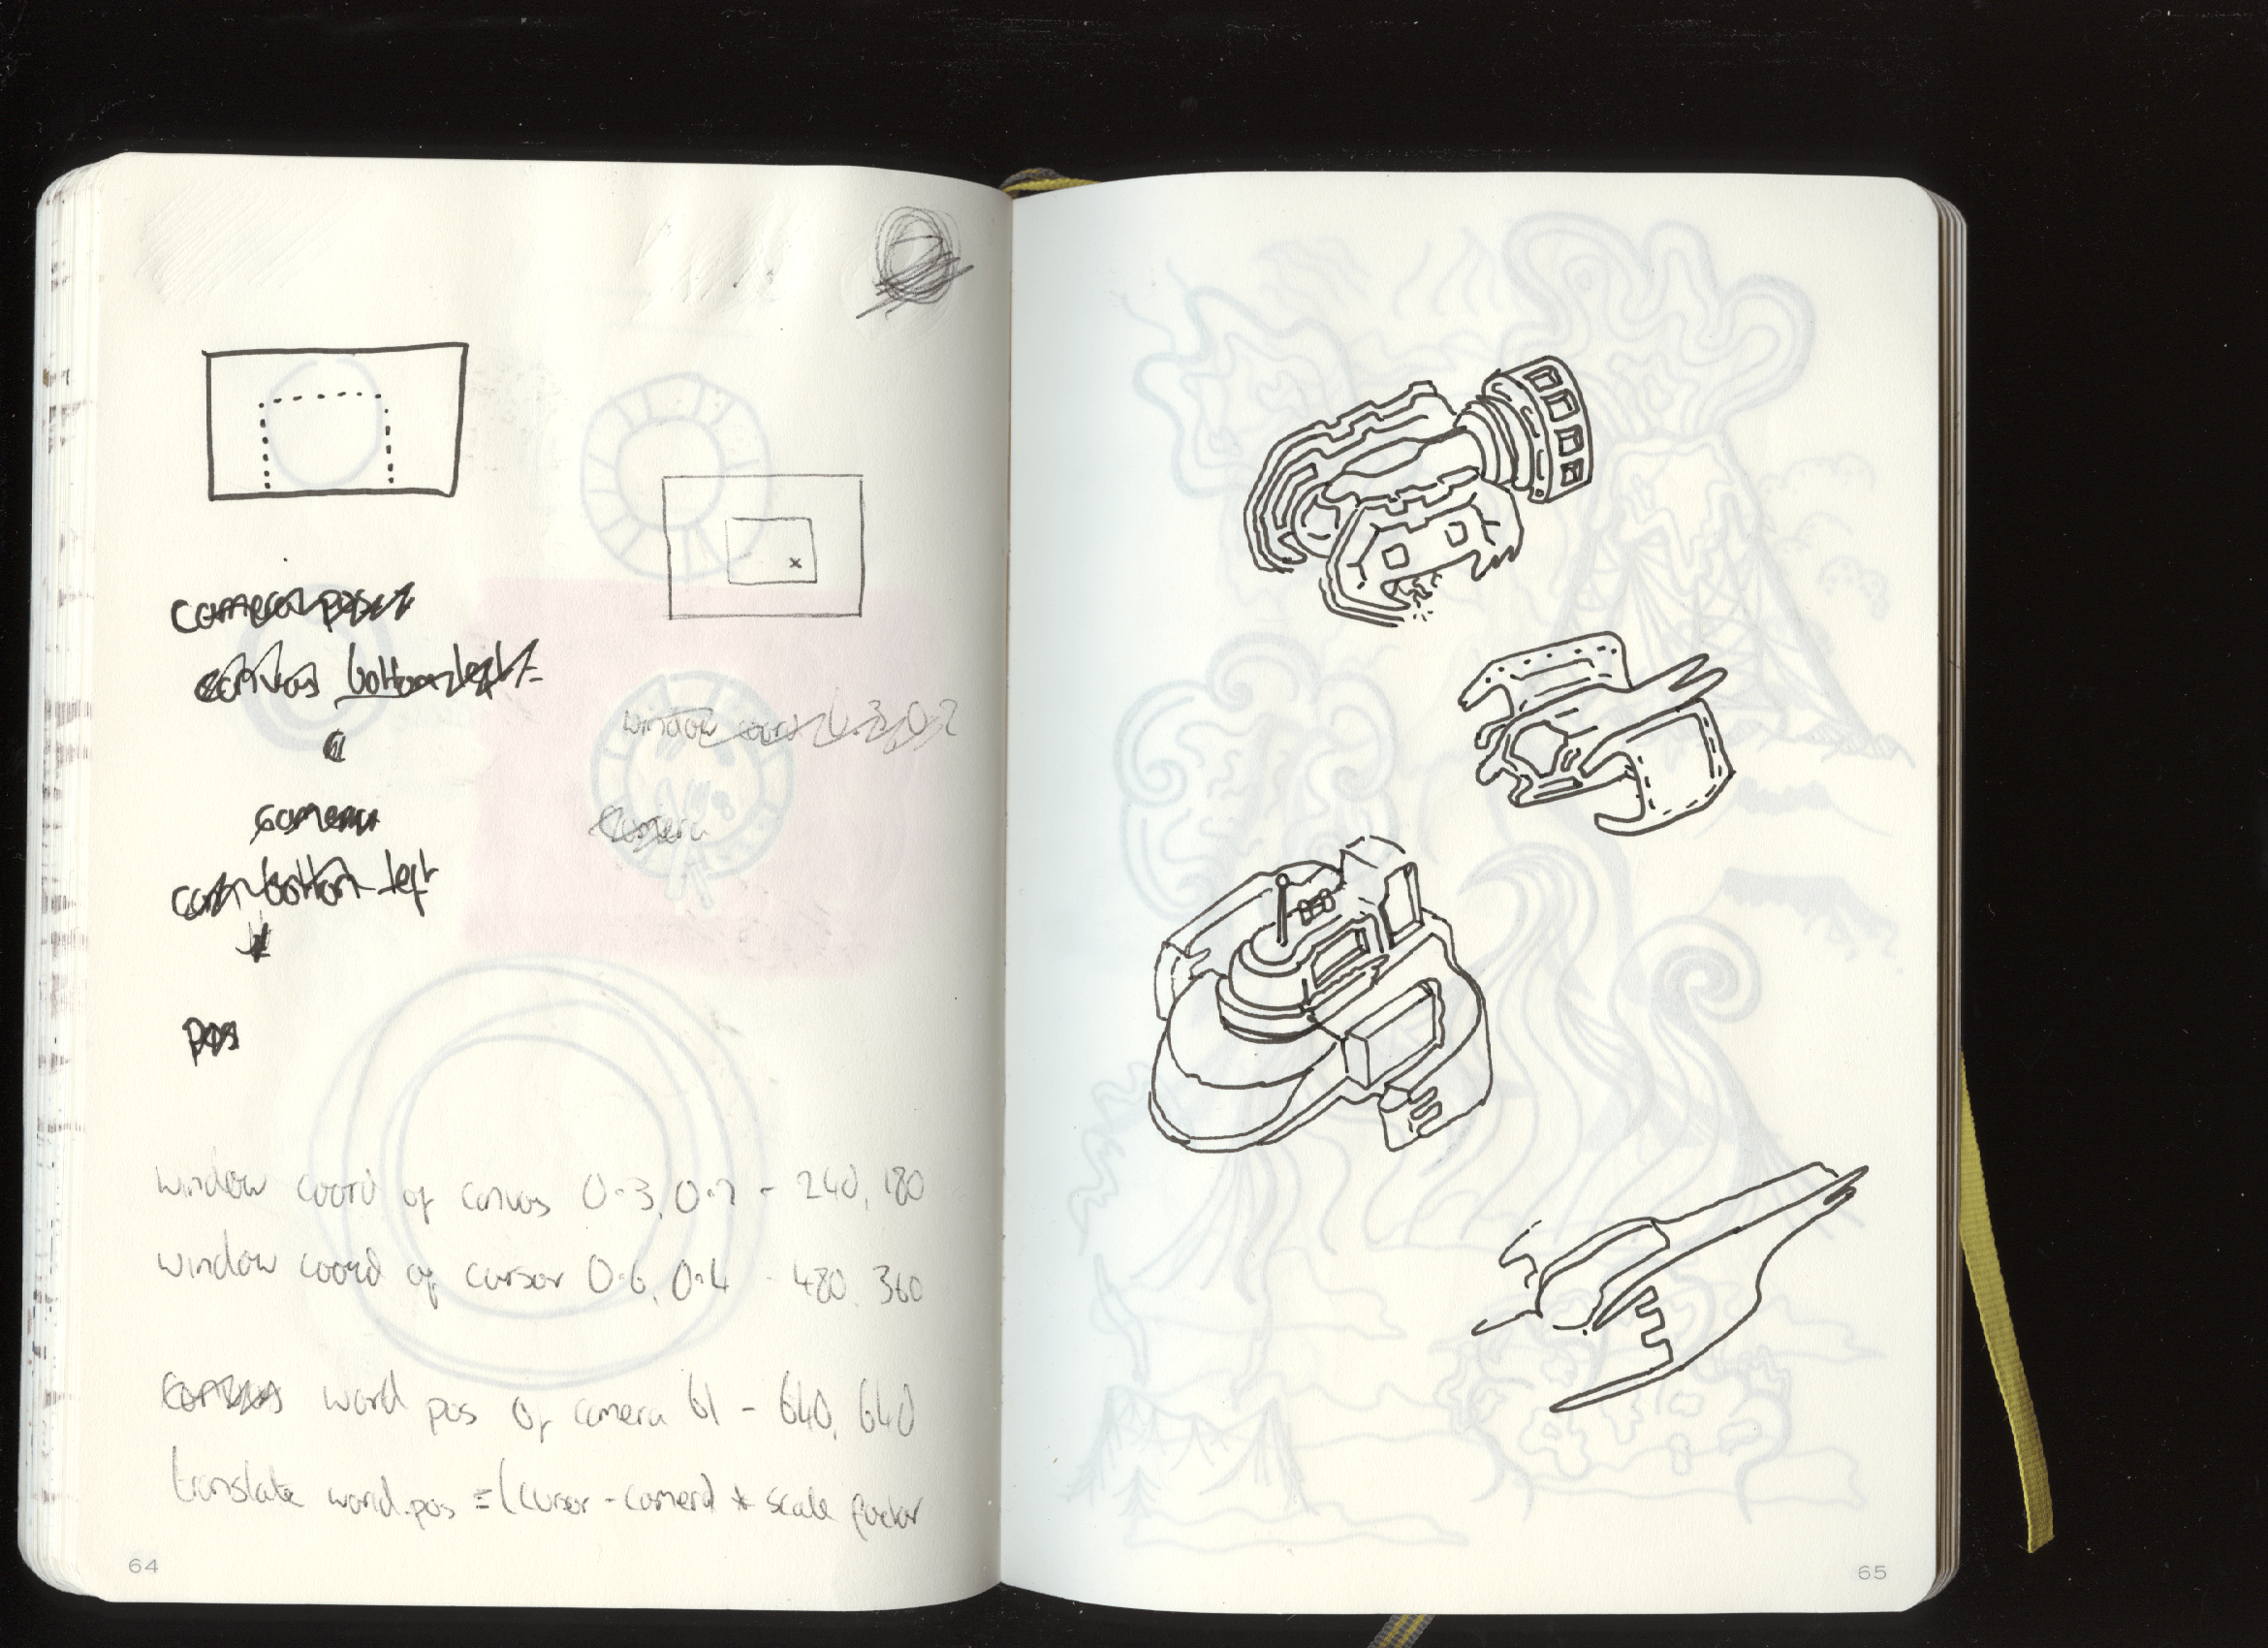 camera pos
canvas bottom left =
camera
can bottom left
pos
window coord 0.3, 0.2
camera
window coord of canvas 0.3, 0.2 - 240, 180
window coord of cursor 0.6, 0.4 - 480, 360
canvas world pos of camera bl - 640, 640
translate world.pos = (cursor - camera) * scale factor
64
65